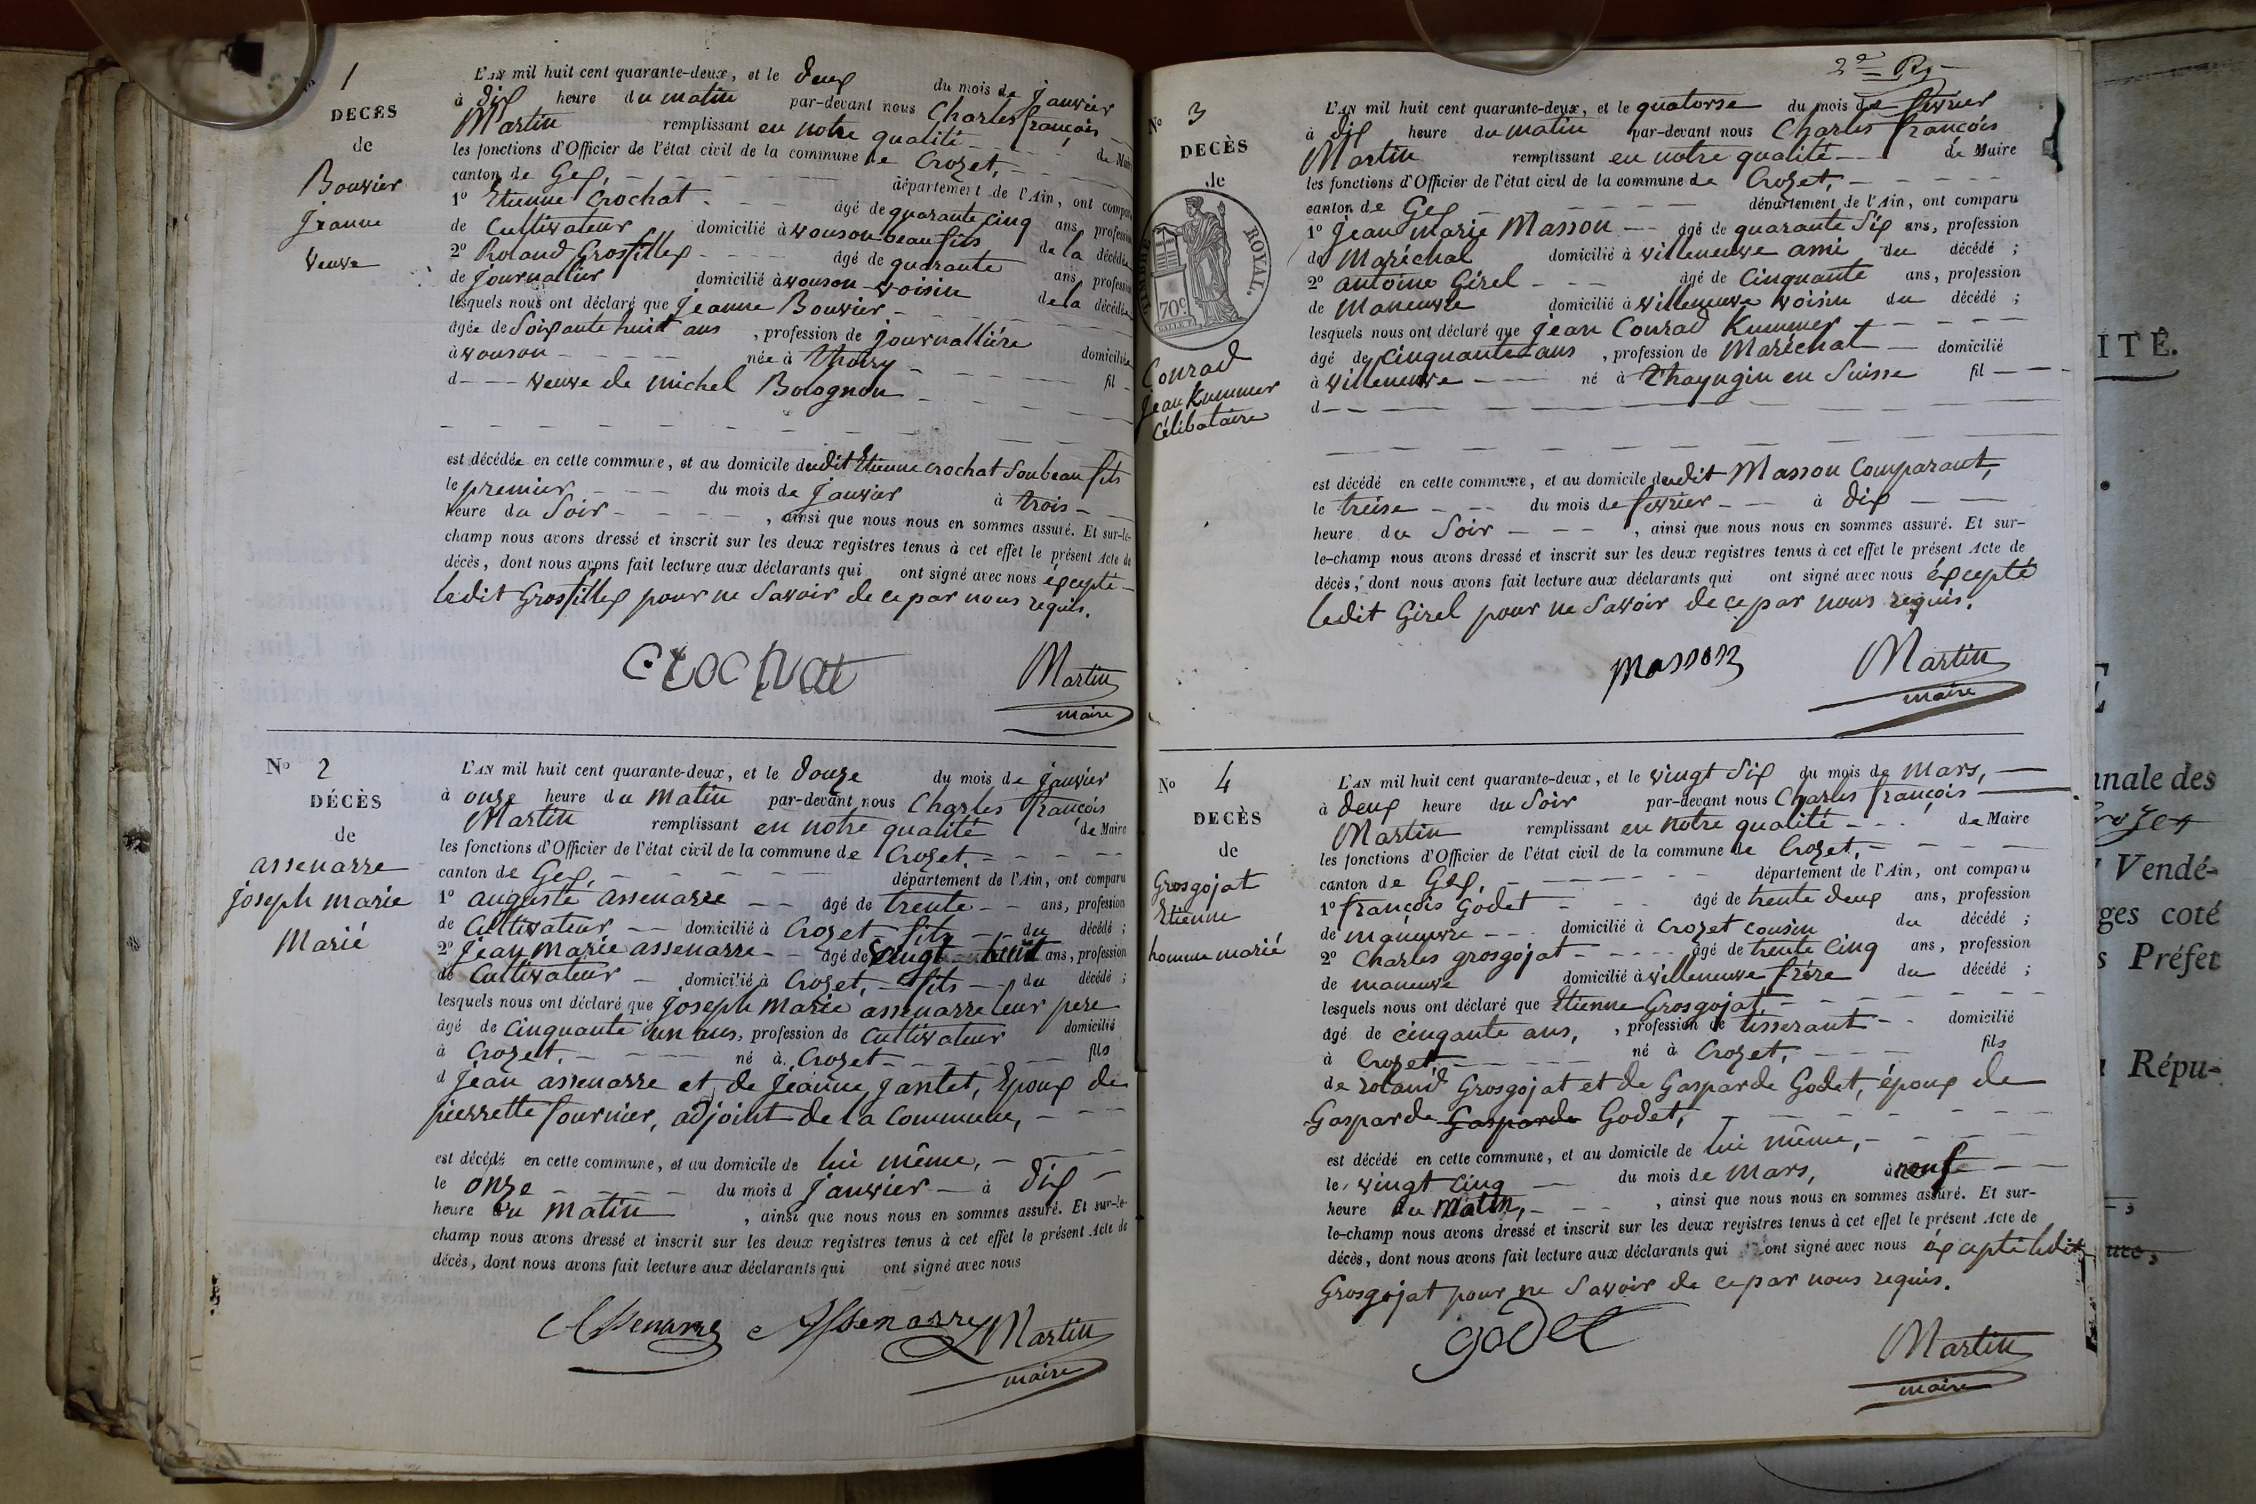 1
DECES
de
Bouvier
Jeanne
Veuve
L'AN mil huit cent quarante-deux, et le deux du mois de janvier
à dix heure du matin par-devant nous Charles françois
Martin remplissant en notre qualité de Maire
les fonctions d'Officier de l'état civil de la commune de Crozet,
canton de Gex, département de l'Ain, ont comparu
1º Etienne Crochat âgé de quarante cinq ans, profession
de Cultivateur domicilié à vouson beau fils de la décédée
2º Roland Grosfilley âgé de quarante ans, profession
de Journallier domicilié à vouson voisin de la décédée
lesquels nous ont déclaré que Jeanne Bouvier,
âgée de Soixante huit ans, profession de Journallière domiciliée
à vouson née à Thoiry fil
d veuve de michel Bolognon
est décédée en cette commune, et au domicile dudit Etienne crochat Son beau fils
le premier du mois de janvier à trois
heure du Soir, ainsi que nous nous en sommes assuré. Et sur-le-
champ nous avons dressé et inscrit sur les deux registres tenus à cet effet le présent Acte de
décès, dont nous avons fait lecture aux déclarants qui ont signé avec nous éxcepté
ledit Grosfilley pour ne Savoir de ce par nous requis.
Crochat Martin
maire
Nº 2
DÉCÈS
de
assenarre
joseph marie
Marié
L'AN mil huit cent quarante-deux, et le douze du mois de janvier
à onze heure du matin par-devant nous Charles françois
Martin remplissant en notre qualité de Maire
les fonctions d'Officier de l'état civil de la commune de Crozet.
canton de Gex, département de l'Ain, ont comparu
1º auguste assenarre âgé de trente ans, profession
de Cultivateur domicilié à Crozet fils du décédé ;
2º Jean marie assenarre âgé de vingt huit ans, profession
de Cultivateur domicilié à Crozet, fils du décédé ;
lesquels nous ont déclaré que joseph marie assenarre leur pere
âgé de cinquante un ans, profession de cultivateur domicilié
à Crozet, né à Crozet fils
d Jean assenarre et de Jeanne Jantet, Epoux de
pierrette fournier, adjoint de la commune,
est décédé en cette commune, et au domicile de lui même,
le onze du mois d Janvier à dix
heure du matin, ainsi que nous nous en sommes assuré. Et sur-le-
champ nous avons dressé et inscrit sur les deux registres tenus à cet effet le présent Acte de
décès, dont nous avons fait lecture aux déclarants qui ont signé avec nous
Assenarre Assenarre Martin
maire
Nº 3
DECÈS
de
TIMBRE ROYAL.
70c
Conrad
Jean Kummer
Célibataire
L'AN mil huit cent quarante-deux, et le quatorse du mois de fevrier
à dix heure du matin par-devant nous Charles françois
Martin remplissant en notre qualité de Maire
les fonctions d'Officier de l'état civil de la commune de Crozet,
canton de Gex département de l'Ain, ont comparu
1º Jean marie Masson âgé de quarante Six ans, profession
de Maréchal domicilié à villeneuve ami du décédé ;
2º antoine Girel âgé de Cinquante ans, profession
de maneuvre domicilié à villeneuve voisin du décédé ;
lesquels nous ont déclaré que Jean Conrad Kummer
âgé de cinquante ans, profession de Maréchal domicilié
à villeneuve né à Thayngin en Suisse fil
d
est décédé en cette commune, et au domicile dudit Masson Comparant,
le treise du mois de fevrier à dix
heure du Soir, ainsi que nous nous en sommes assuré. Et sur-
le-champ nous avons dressé et inscrit sur les deux registres tenus à cet effet le présent Acte de
décès, dont nous avons fait lecture aux déclarants qui ont signé avec nous éxcepté
ledit Girel pour ne Savoir de ce par nous requis.
Masson Martin
maire
Nº 4
DECÈS
de
Grosgojat
Etienne
homme marié
L'AN mil huit cent quarante-deux, et le vingt Six du mois de Mars,
à deux heure du Soir par-devant nous Charles françois
Martin remplissant en notre qualité de Maire
les fonctions d'Officier de l'état civil de la commune de Crozet,
canton de Gex, département de l'Ain, ont comparu
1º françois Godet âgé de trente deux ans, profession
de maneuvre domicilié à Crozet cousin du décédé ;
2º Charles grosgojat âgé de trente Cinq ans, profession
de maneuvre domicilié à villeneuve frère du décédé ;
lesquels nous ont déclaré que Etienne Grosgojat
âgé de cinqante ans, profession de tisserant domicilié
à Crozet, né à Crozet, fils
de roland Grosgojat et de Gasparde Godet, époux de
Gasparde Gasparde Godet,
est décédé en cette commune, et au domicile de lui même,
le vingt cinq du mois de Mars, à neuf
heure du matin, ainsi que nous nous en sommes assuré. Et sur-
le-champ nous avons dressé et inscrit sur les deux registres tenus à cet effet le présent Acte de
décès, dont nous avons fait lecture aux déclarants qui ont signé avec nous éxcepté ledit
Grosgojat pour ne Savoir de ce par nous requis.
godet Martin
maire
ITÉ.
nnale des
Vendé-
ges coté
s Préfet
Répu-